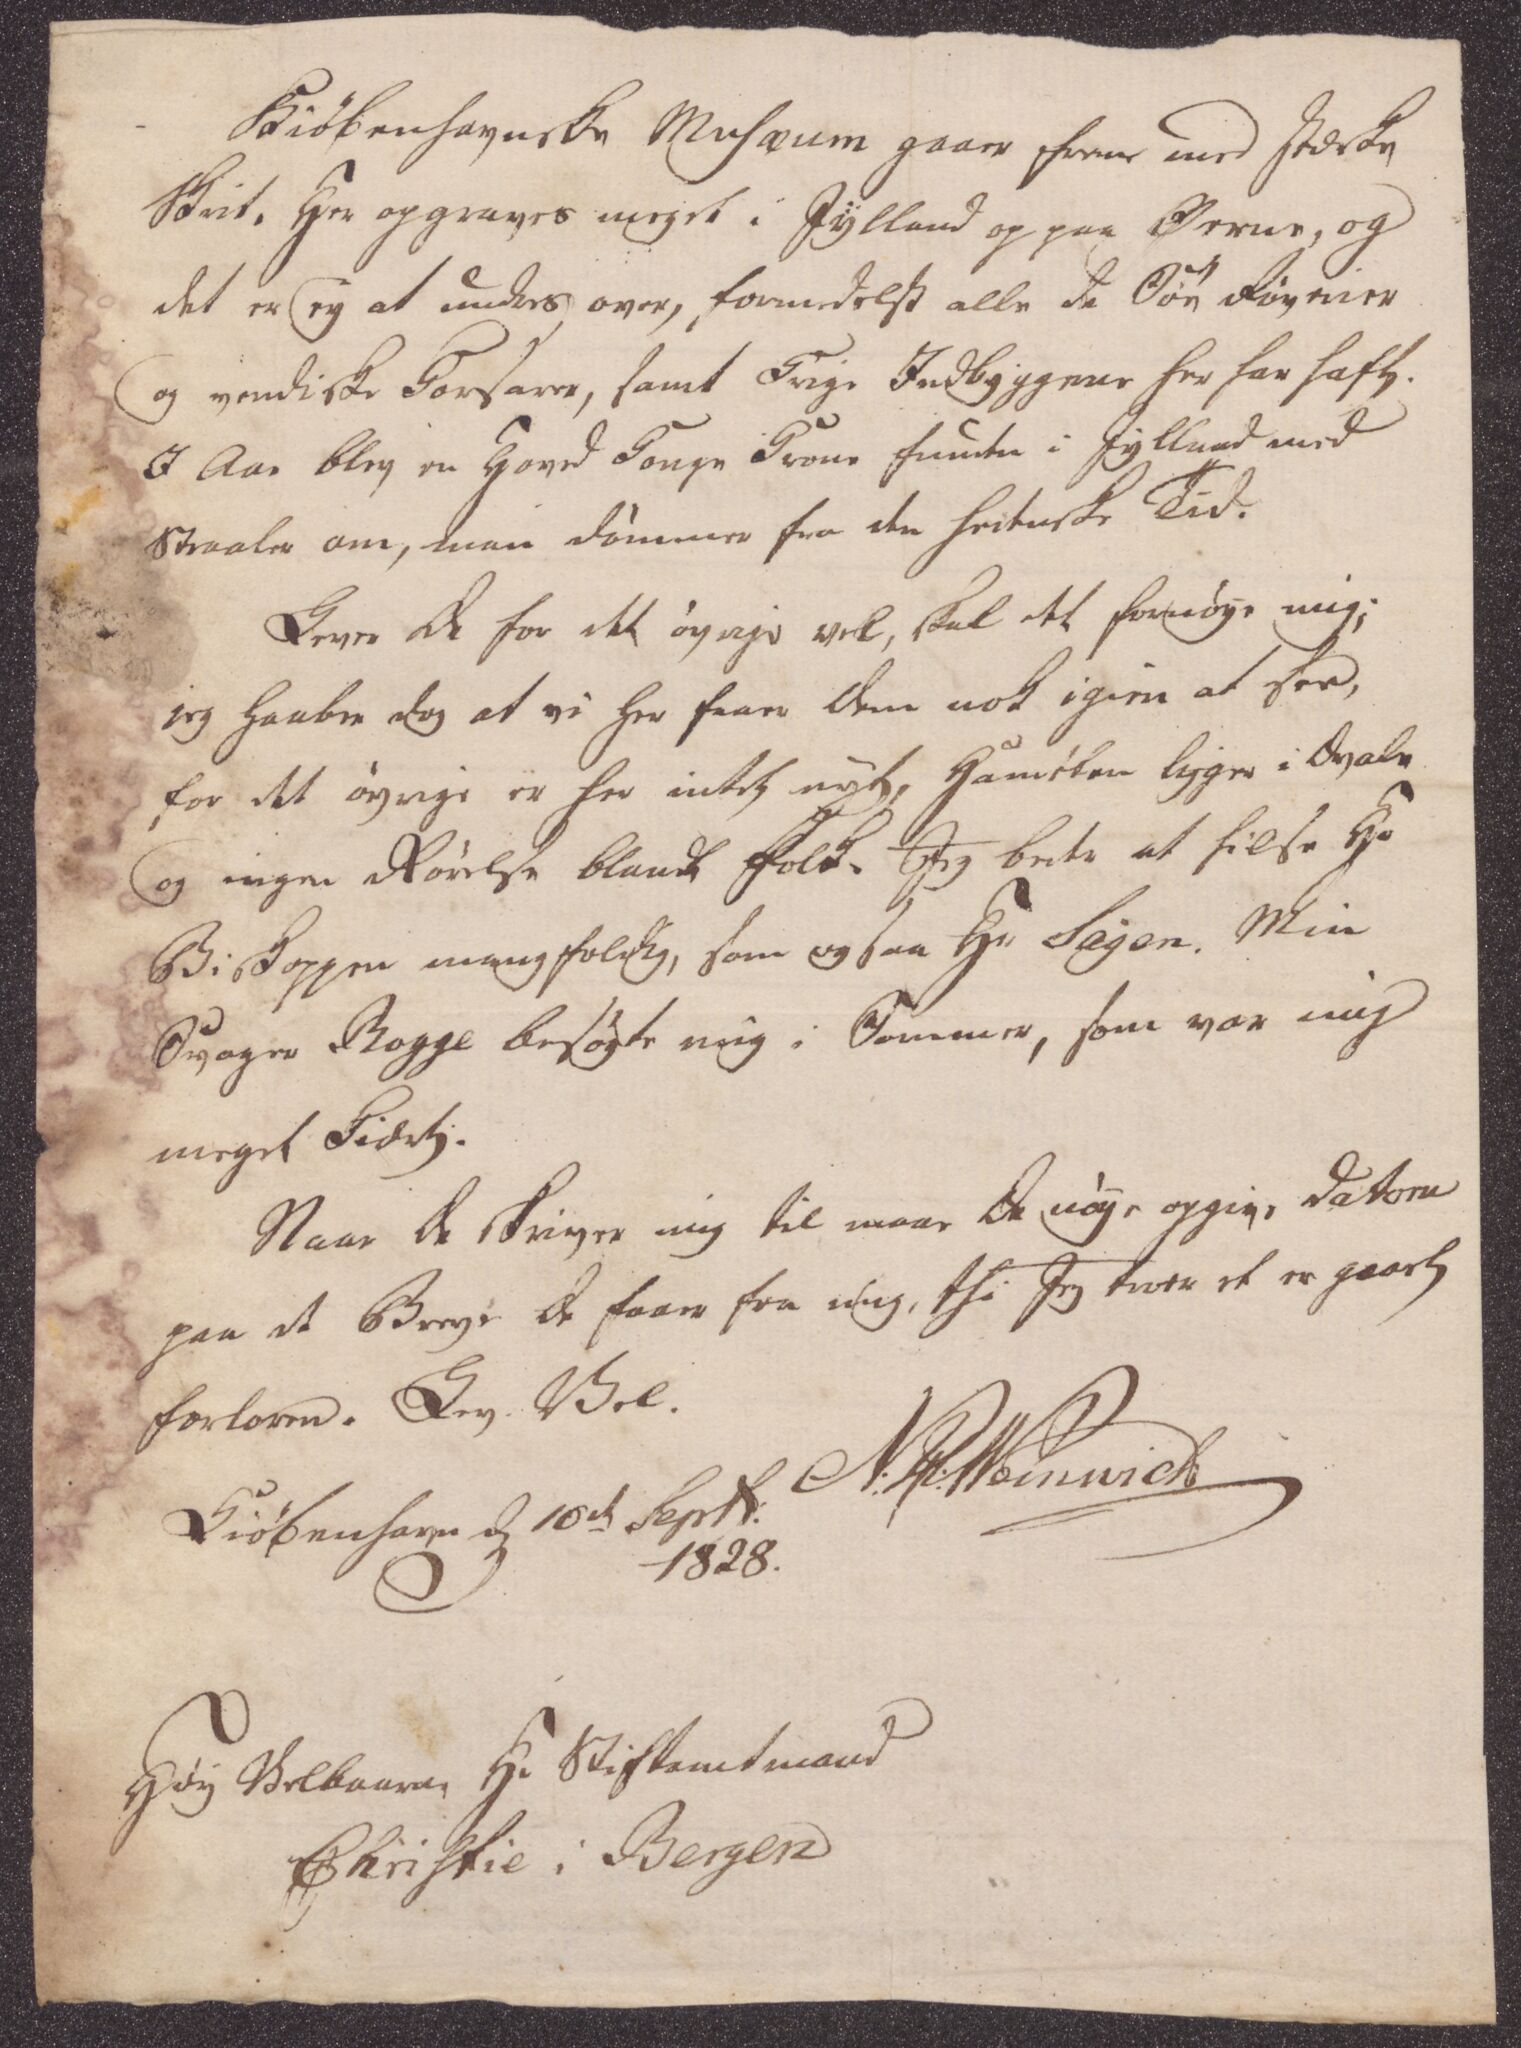 Kiöbenhavnske Musæum gaaer frem med stærke
Skrit. Her opgraves meget i Jÿlland og paa Øerne, og
det er ey at undres over, formedelst alle de Söe Röverier
og vendiske Corsarer, samt Krige Indbyggerne her har haft.
I Aar blev en Hoved Konge Krone funden i Jylland med
Straaler om, man dömmer fra den hedenske Tid.
Lever De for det övrige vel, skal det fornöye mig;
jeg haaber dog at vi her faaer Dem nok igien at see,
for det övrige er her intet nyt, Handelen ligger i Dvale
og ingen Rörelse blandt Folk. Jeg beder at hilse Hr
Biskoppen mangfoldig, som ogsaa Hr Sagen. Min
Svoger Rogge besögte mig i Sommer, som var mig
meget Kiært.
Naar De skriver mig til maae De nöye opgive Datoen
paa de Breve De faaer fra mig, thi Jeg troer et er gaaet
forloren. Lev Vel.
N. H. Weinwich
Kiöbenhavn d 18de Septb:
1828.
Höy Velbaarne Hr Stiftamtmand
Christie i Bergen